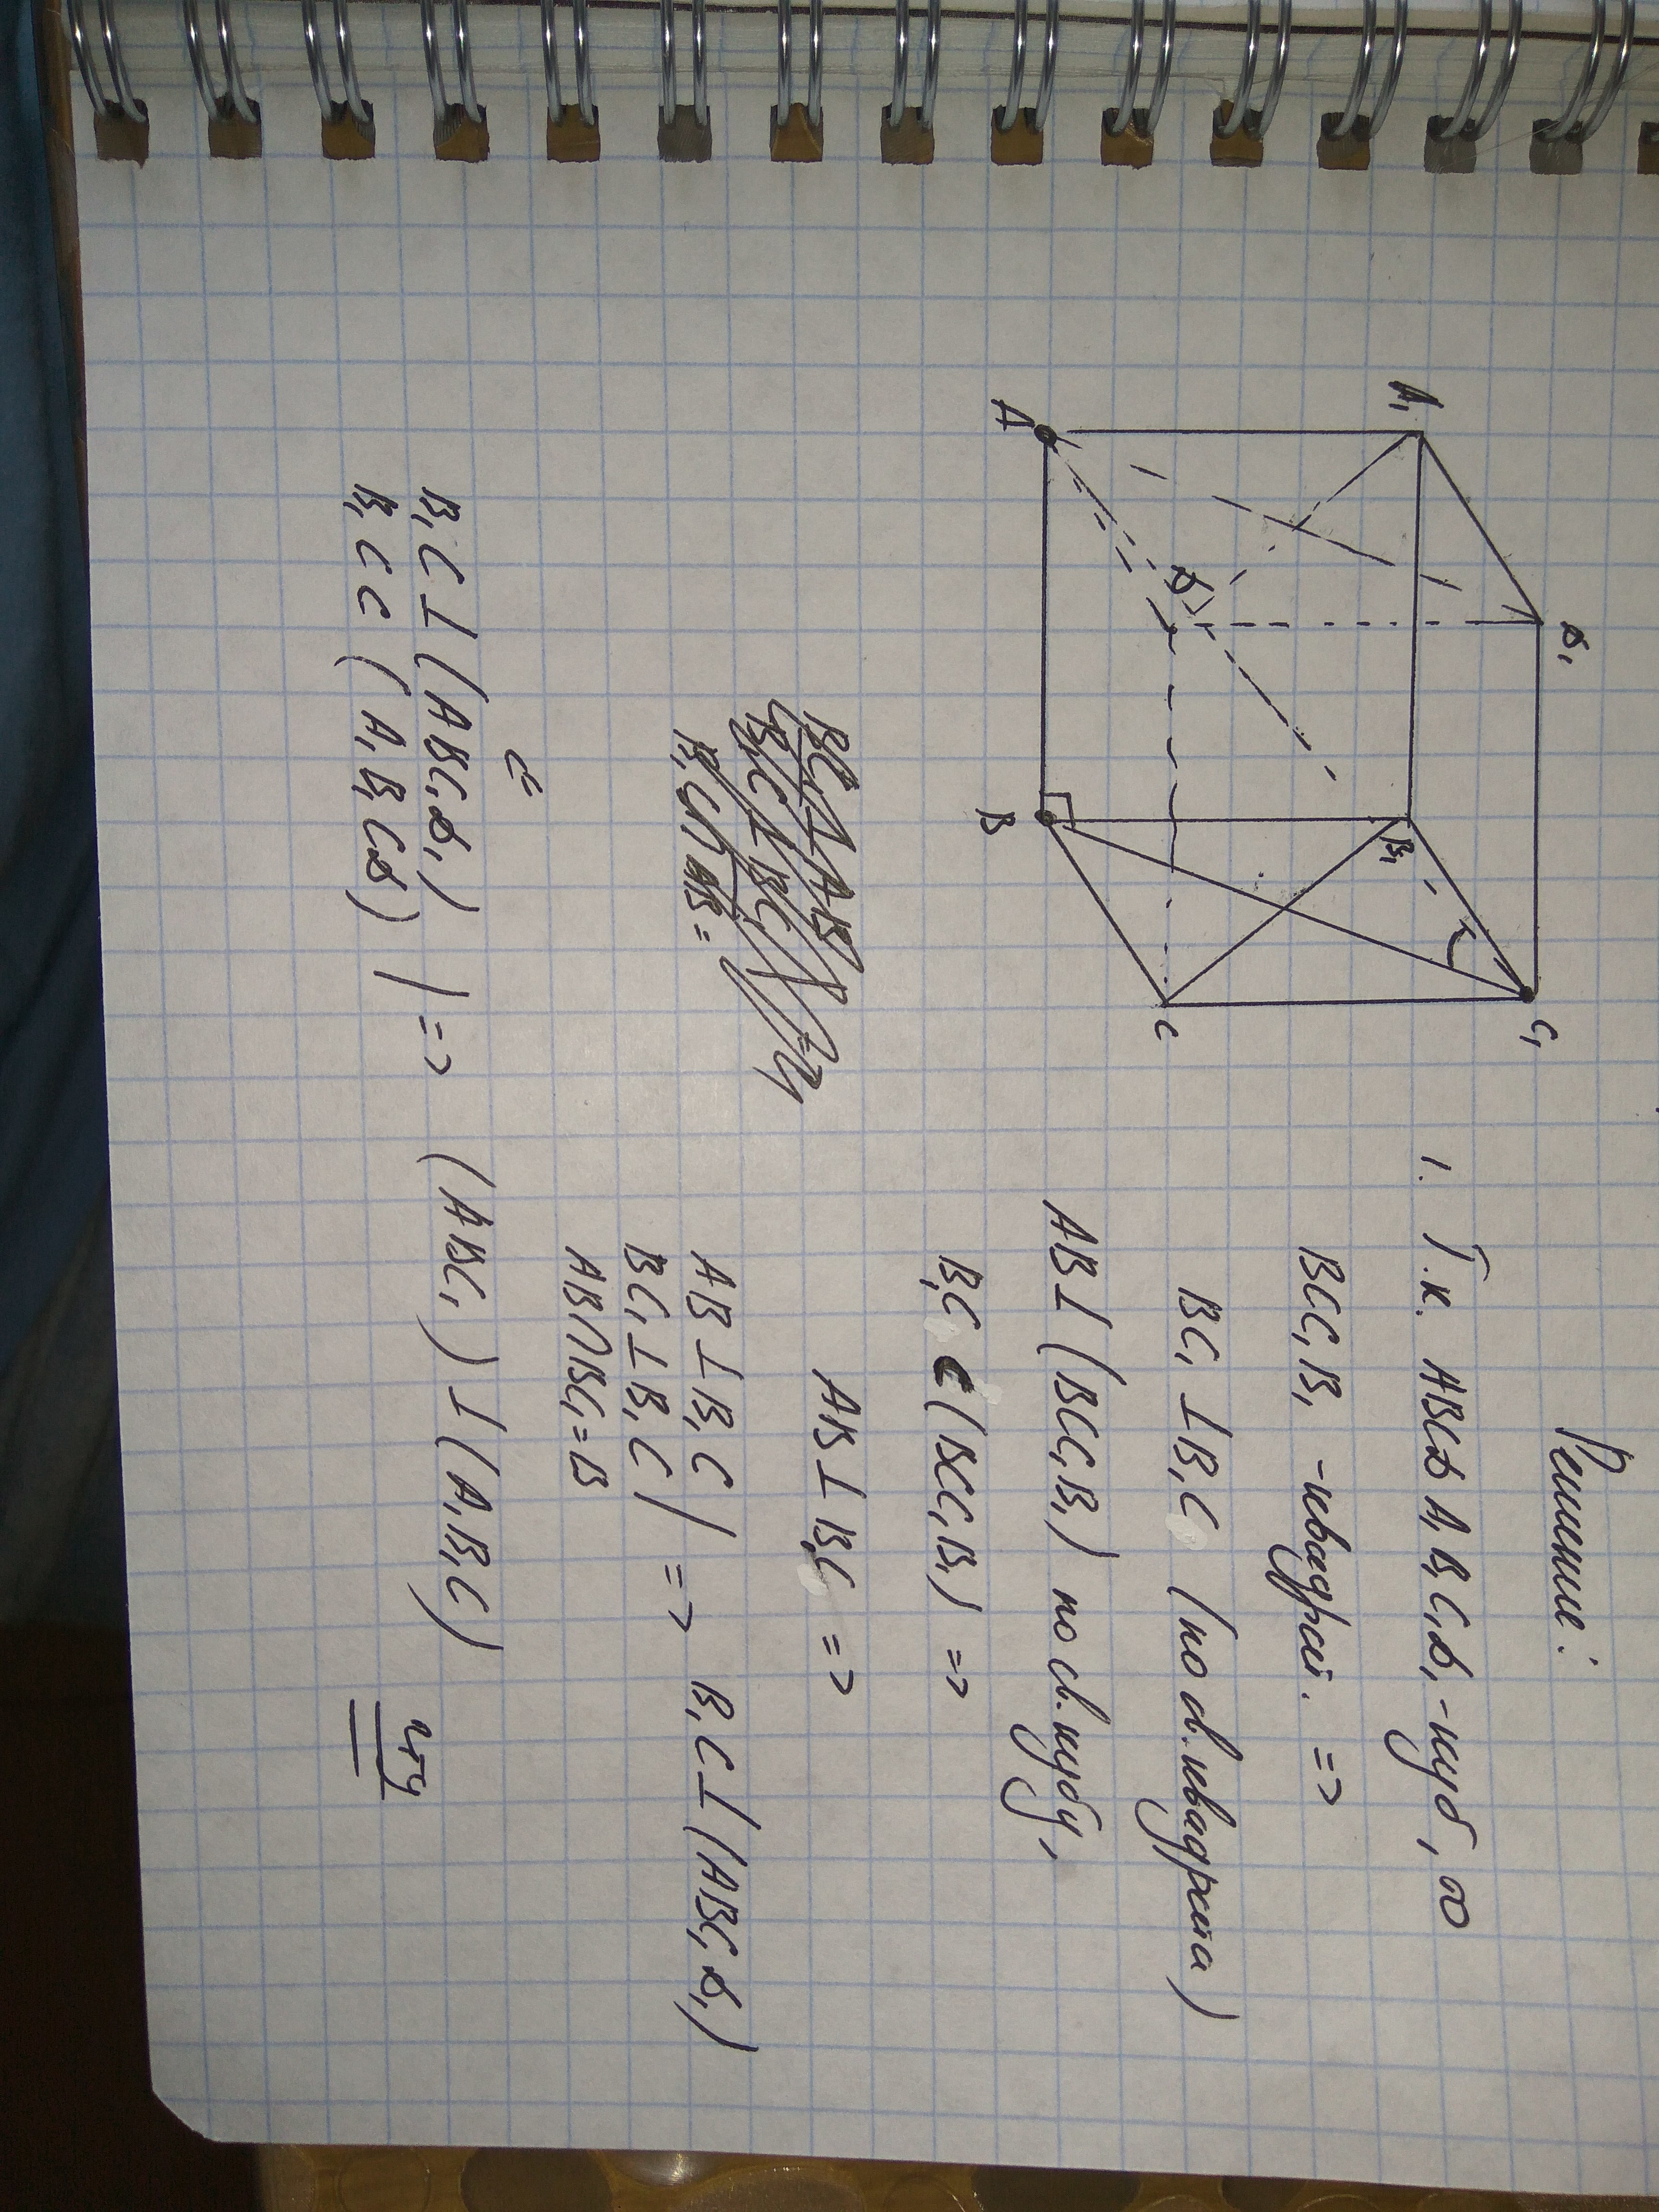 Решение:
1. Т.к. ABCD A₁B₁C₁D₁ - куб, то
BCC₁B₁ - квадрат. =>
BC₁ ⊥ B₁C (по св. квадрата)
AB ⊥ (BCC₁B₁) по св. кубу,
B₁C ⊂ (BCC₁B₁) =>
AB ⊥ B₁C =>
AB ⊥ B₁C
BC₁ ⊥ B₁C | => B₁C ⊥ (ABC₁D₁)
AB ∩ BC₁ = B
B₁C ⊥ (ABC₁D₁)
B₁C ⊂ (A₁B₁CD) | => (ABC₁) ⊥ (A₁B₁C)
чтд
A₁
D₁
B₁
C₁
A
D
B
C